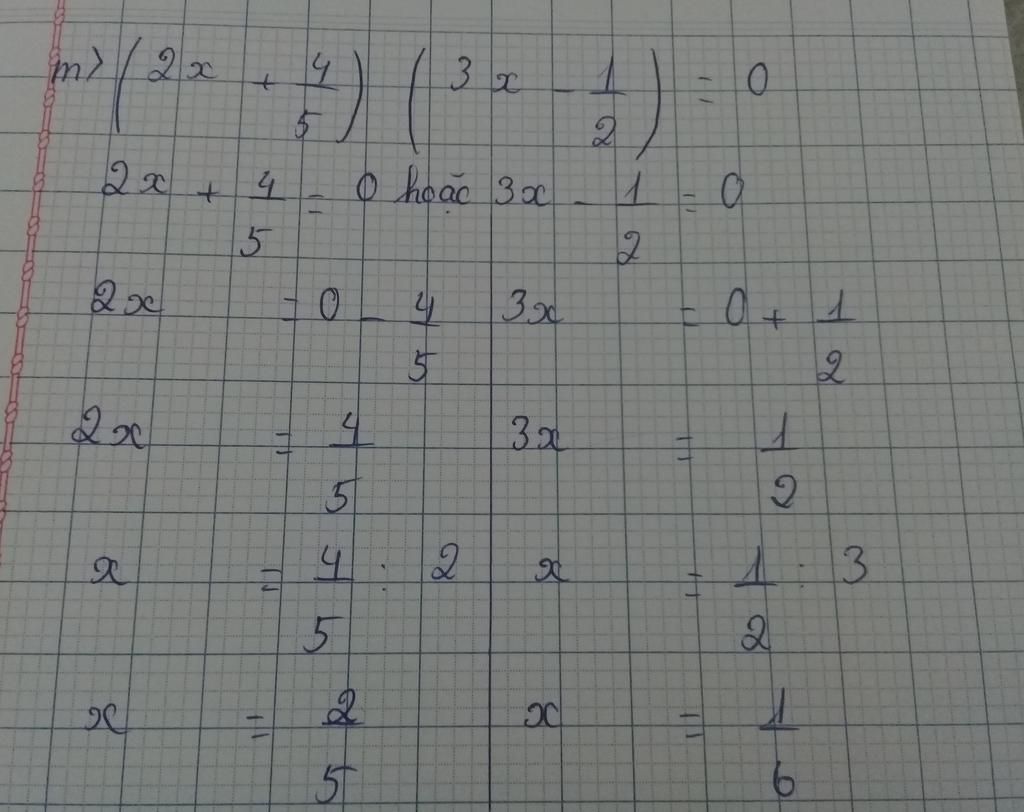 m) (2x + 4/5) (3x - 1/2) = 0
2x + 4/5 = 0 hoặc 3x - 1/2 = 0
2x = 0 - 4/5 3x = 0 + 1/2
2x = 4/5 3x = 1/2
x = 4/5 : 2 x = 1/2 : 3
x = 2/5 x = 1/6